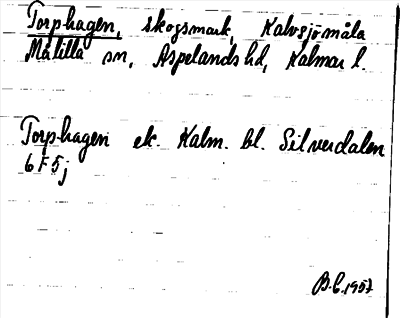 Torphagen, skogsmark, Kalvsjömåla
Målilla sn, Aspelands hd, Kalmar l.
Torphagen ek. Kalm. bl. Silverdalen
6F5j
B.C. 1957